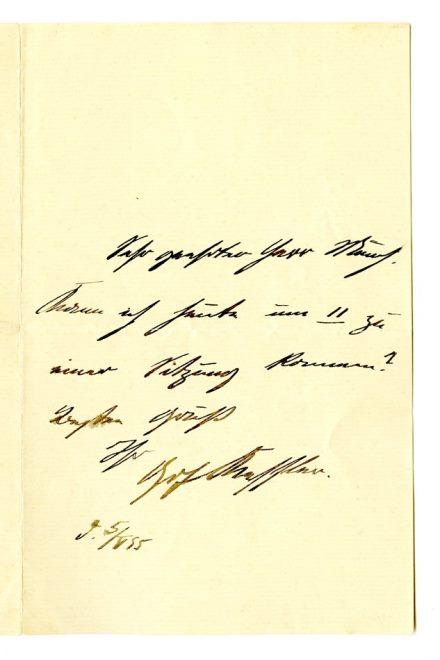 Sehr geehrter Herr Munch.
Kann ich heute um 11 zu
einer Sitzung kommen?
Besten Gruß
Ihr
Grf Kessler.